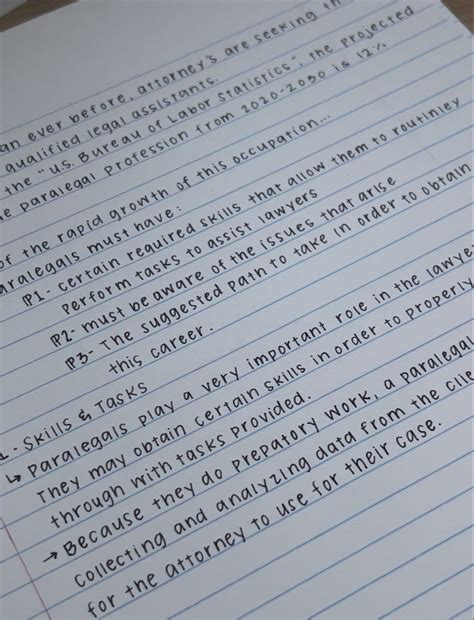 an ever before, attorney's are seeking
qualified legal assistants.
the "U.S. Bureau of Labor Statistics", the projected
Paralegal Profession from 2020-2030 is 12%
of the rapid growth of this occupation...
aralegals must have:
P1- certain required skills that allow them to routinley
perform tasks to assist lawyers
P2- must be aware of the issues that arise
P3- The suggested path to take in order to obtain
this career.
1- Skills & Tasks
↳ Paralegals play a very important role in the lawye
They may obtain certain skills in order to properly
through with tasks provided.
→ Because they do prepatory work, a paralegal
collecting and analyzing data from the clie
for the attorney to use for their case.